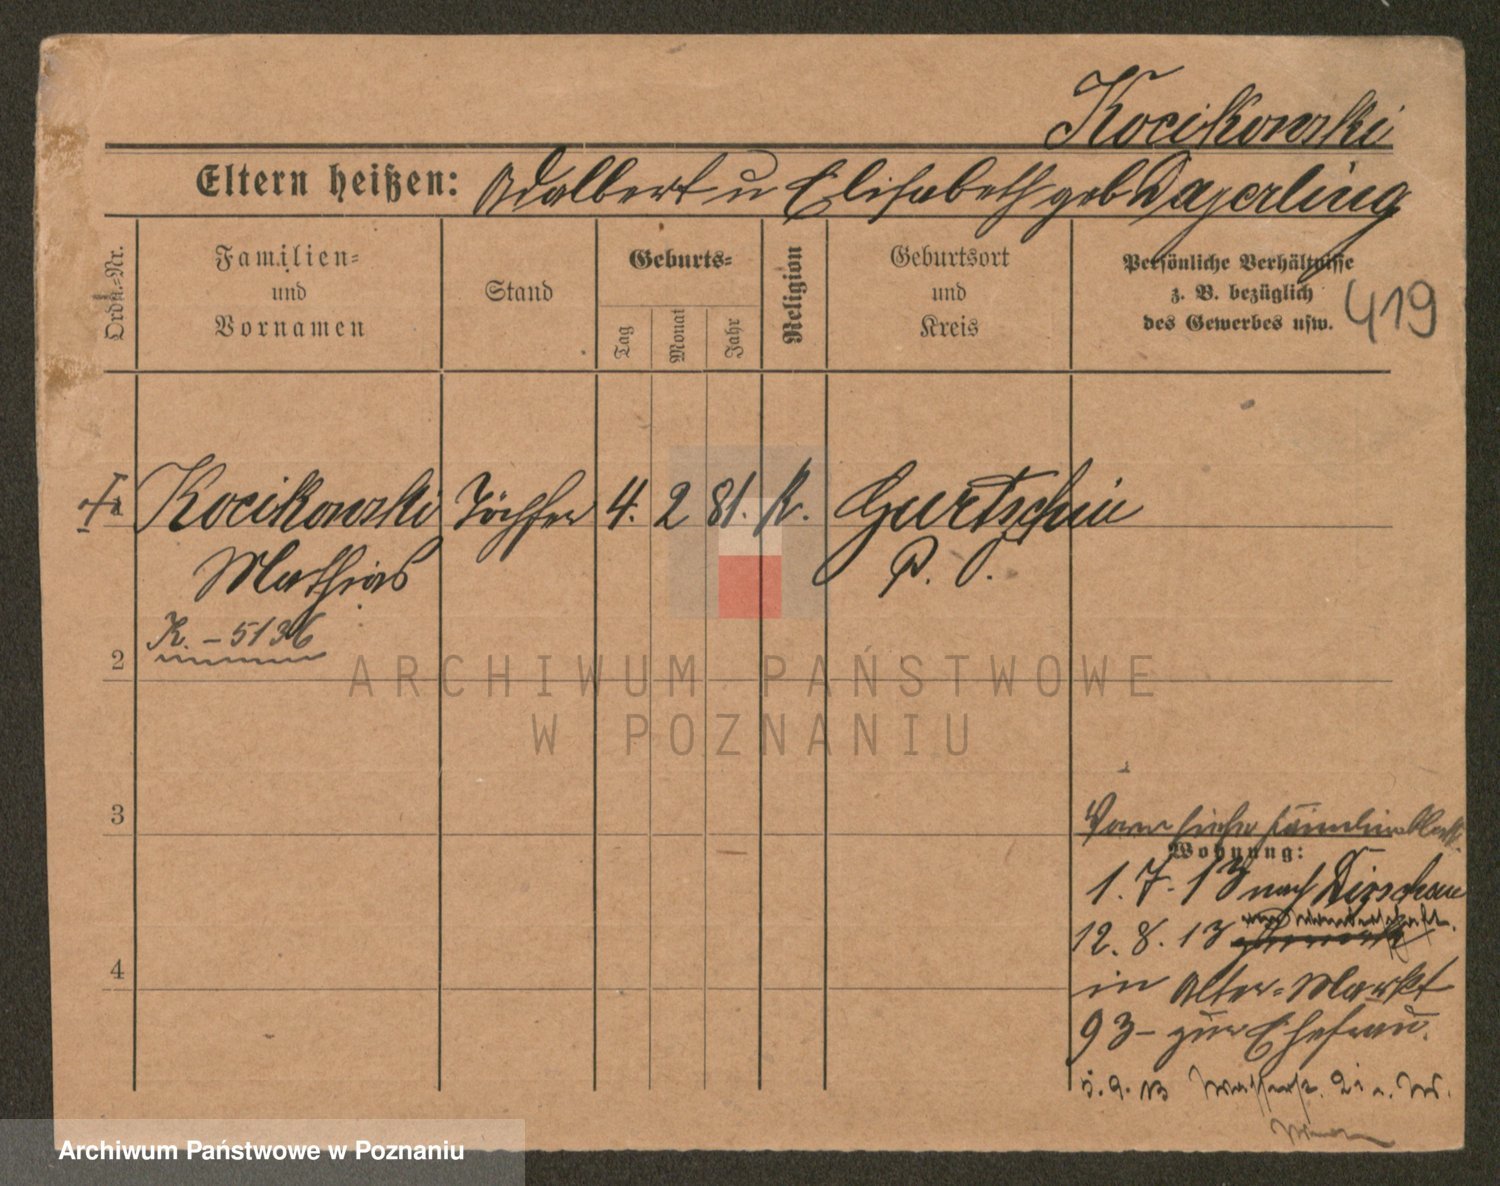 Kocikowski
Eltern heißen: Adalbert u Elisabeth geb Dajerling
Ordn.-Nr.
Familien-
und
Vornamen
Stand
Geburts-
Tag
Monat
Jahr
Religion
Geburtsort
und
Kreis
Persönliche Verhältnisse
z. B. bezüglich
des Gewerbes usw.
419
Kocikowski Töpfer 4. 2 81. k. Gurtschin
Mathias P. O.
K. - 5136
2
ARCHIWUM PAŃSTWOWE
W POZNANIU
3
siehe
Wohnung:
1. 7. 13 nach Dirschau
12. 8. 13
4
in Alter-Markt
93 - zur Ehefrau.
5. 9. 13
Archiwum Państwowe w Poznaniu